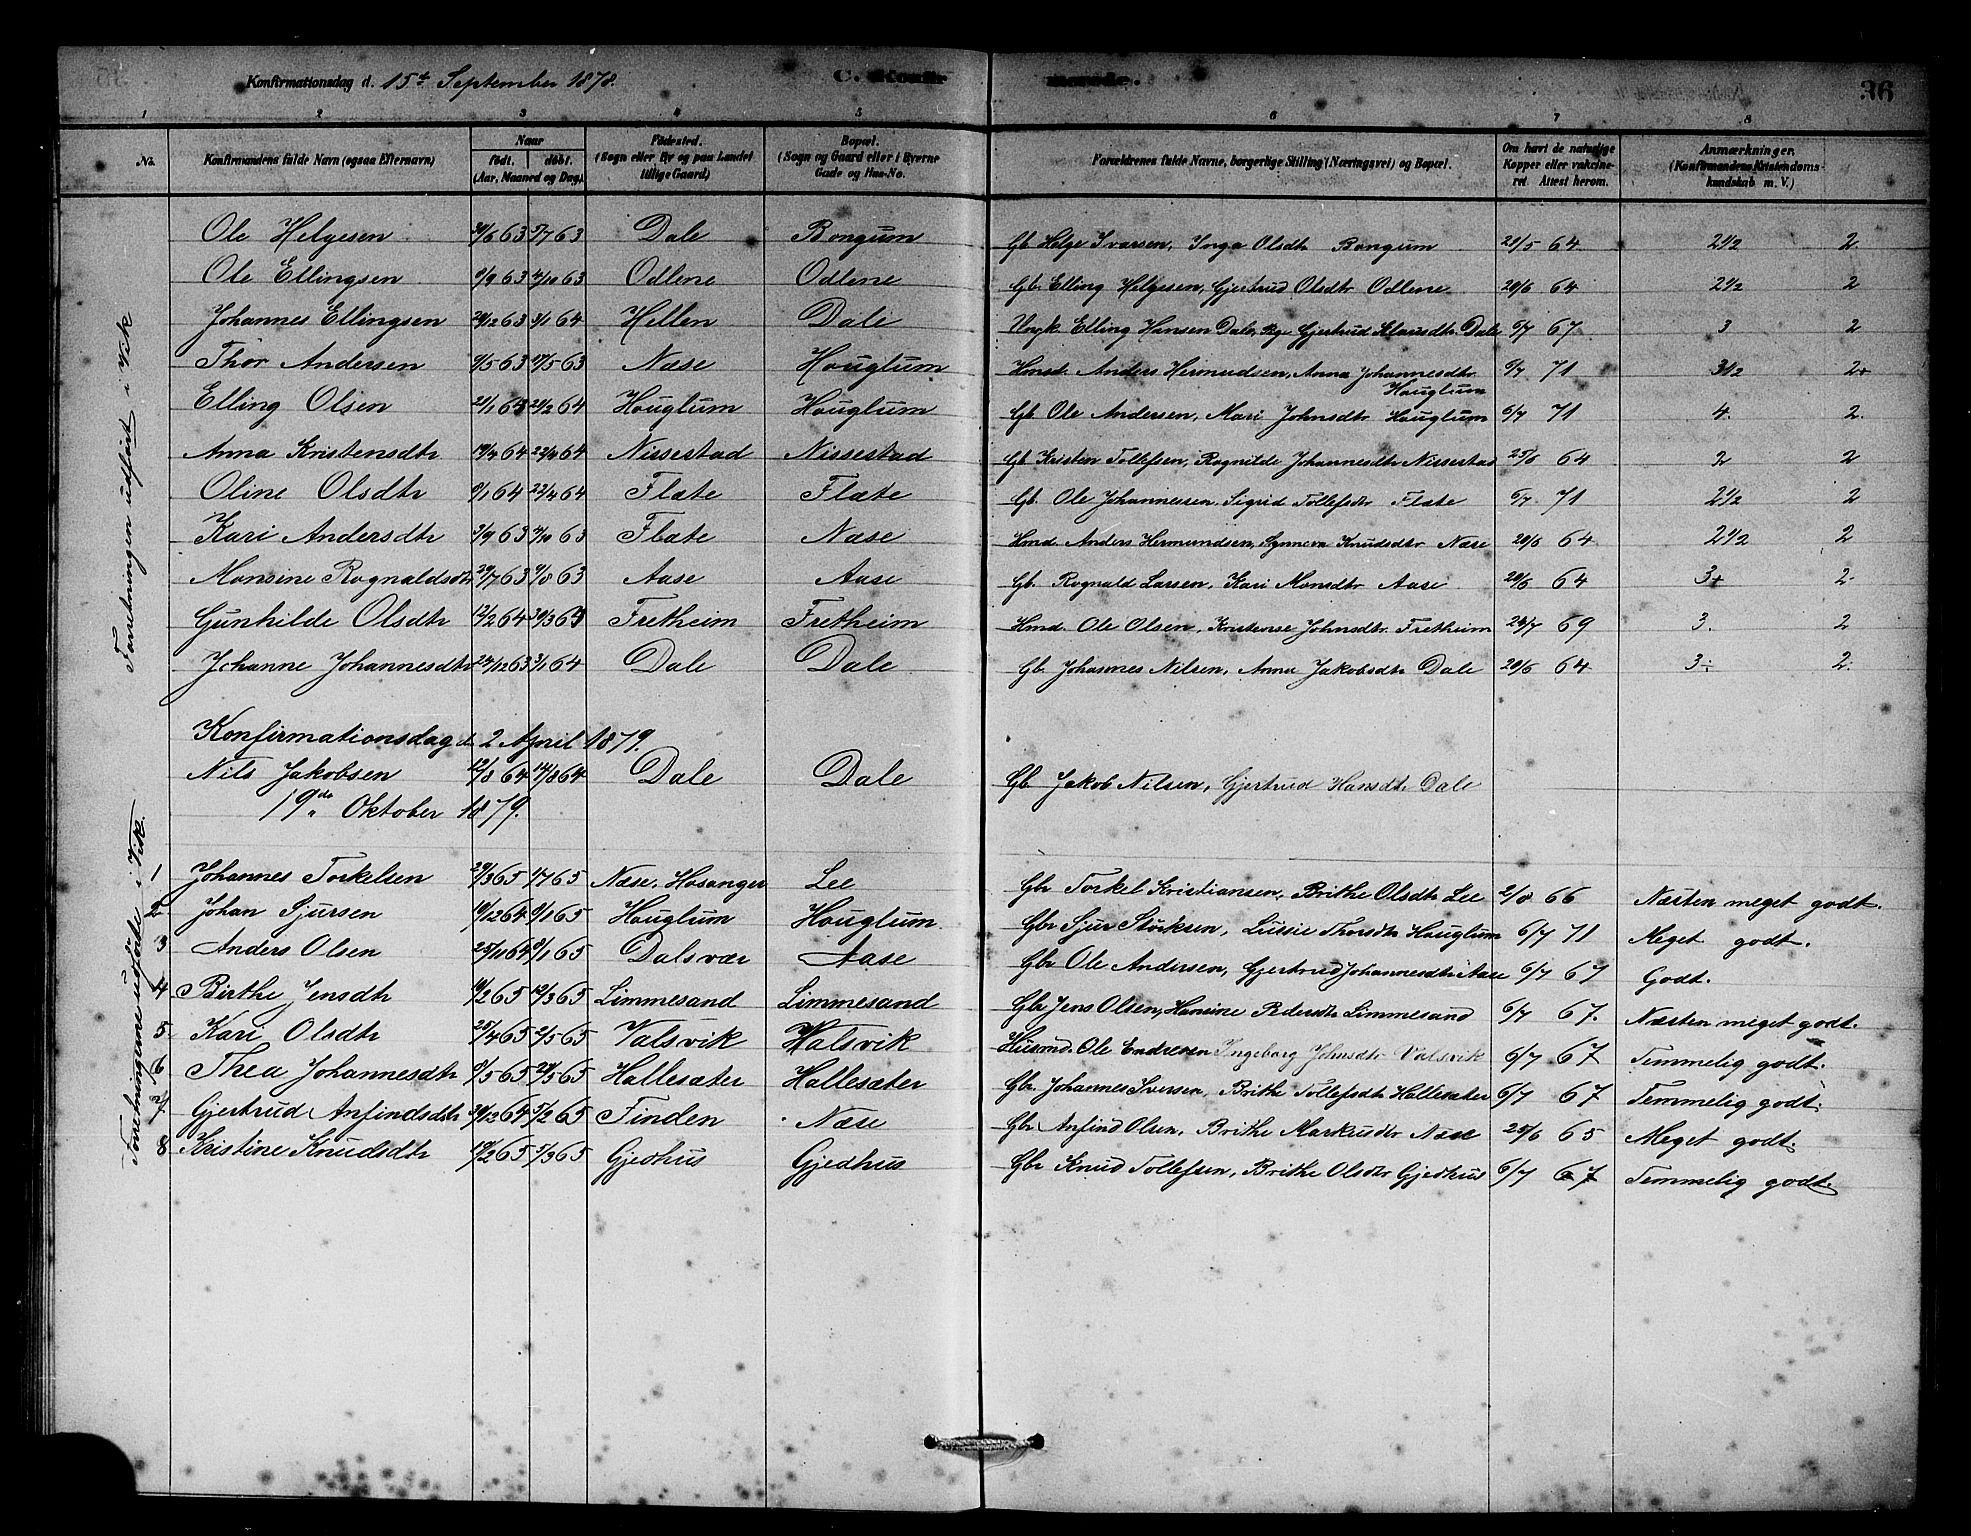 Konfirmationsdag d. 15de September 1878. C. Konfirmerede. 36
1 2 3 4 5 6 7 8
No. Konfirmandens fulde Navn (ogsaa Efternavn) Naar født. døbt. (Aar, Maaned og Dag.) Fødested. (Sogn eller By og paa Landet tillige Gaard) Bopæl. (Sogn og Gaard eller i Byerne Gade og Hus-No. Forældrenes fulde Navne, borgerlige Stilling (Næringsvei) og Bopæl. Om havt de naturlige Kopper eller vakcineret. Attest herom. Anmærkninger. (Konfirmandens Kristendomskundskab m. V.)
Forretningen udført i Vik
Ole Helgesen 63 63 Dale Bongum Gb. Helge Ivarsen, Inga Olsdtr Bongum 64 2 1/2 2
Ole Ellingsen 63 63 Odlene Odlene Gb. Elling Helgesen, Gjertrud Olsdtr Odlene 20/6 64 2 1/2 2
Johannes Ellingsen 63 3/1 64 Hellen Dale Elling Hansen Dale, Gjertrud Dale 6/7 67 3 2
Thor Andersen 9/5 63 17/5 63 Næse Houglum Hmd. Anders Hermundsen, Anna Johannesdtr Houglum 6/7 71 3 1/2 2+
Elling Olsen 64 64 Houglum Houglum Gb. Ole Andersen, Mari Johnsdtr Houglum 6/7 71 4. 2.
Anna Kristensdtr 64 64 Nissestad Nissestad Gb Kristen Tollefsen, Rognilde Johannesdtr Nissestad 25/6 64 2 2
Oline Olsdtr 64 64 Flate Flate Gb. Ole Johannessen Sigrid Tollefsdtr Flate 6/7 71 2 1/2 2
Kari Andersdtr 3/9 63 4/10 63 Flate Næse Hmd Anders Hermundsen, Synneva Knudsdtr Næse 20/6 64 2 1/2 2
Monsine Rognaldsdtr 29/7 63 63 Aase Aase Gb. Rognald Larsen, Kari Monsdtr Aase 20/6 64 3+ 2
Gunhilde Olsdtr 12/2 64 Fretheim Fretheim Hmd. Ole Olsen, Kristense Johnsdtr Fretheim 69 3. 2
Johanne Johannesdtr 63 3/1 64 Dale Dale Gb. Johannes Nilsen, Anna Jakobsdtr Dale 20/6 64 3÷ 2.
Konfirmationsdag d. 2 April 1879.
Nils Jakobsen 12/8 64 14/8 64 Dale Dale Gb Jakob Nilsen, Gjertrud Hansdtr Dale
19de Oktober 1879.
Forretningerne udførte i Vik.
1 Johannes Torkelsen 65 65 Næse, Hosanger Lee Gbr Torkel Kristiansen, Brithe Olsdtr Lee 2/8 66 Næsten meget godt.
2 Johan Sjursen 64 65 Houglum Houglum Gbr Sjur Størksen, Lussie Thorsdtr Houglum 6/7 71 Meget godt.
3 Anders Olsen 64 65 Dalsvær Aase Gbr Ole Andersen, Gjertrud Johannesdtr Aase 6/7 67 Godt.
4 Birthe Jensdtr 65 65 Limmesand Limmesand Gbr Jens Olsen, Hansine Pedersdtr Limmesand 6/7 67. Næsten meget godt.
5. Kari Olsdtr 65 65 Valsvik Halsvik Husmd. Ole Endresen Ingeborg Johnsdtr Valsvik 6/7 67 Temmelig godt.
6 Thea Johannesdtr 65 65 Hallesæter Hallesæter Gbr Johannes Iversen, Brithe Tollefsdtr Hallesæter 6/7 67 Temmelig godt.
7 Gjertrud Anfindsdtr 64 65 Tinden Næse Gbr Anfind Olsen, Brithe Markusdtr Næse 65 Meget godt.
8 Kristine Knudsdtr 65 65 Gjedhus Gjedhus Gbr Knud Tollefsen, Brithe Olsdtr Gjedhus 6/7 67 Temmelig godt.